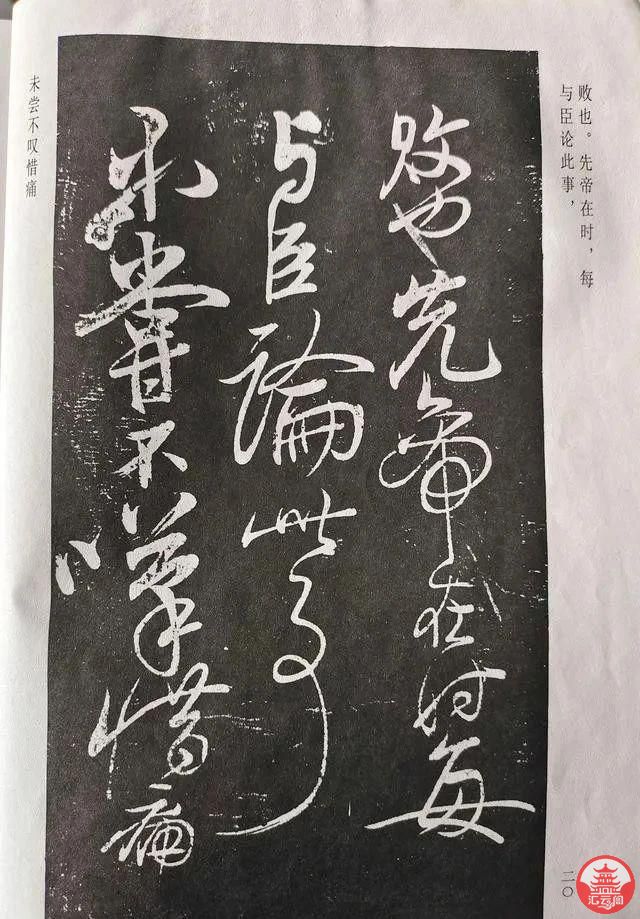 败也。先帝在时，每
与臣论此事，
敗也先帝在时每
与臣論此事
未嘗不嘆惜痛
未尝不叹惜痛
二〇
汇云阁